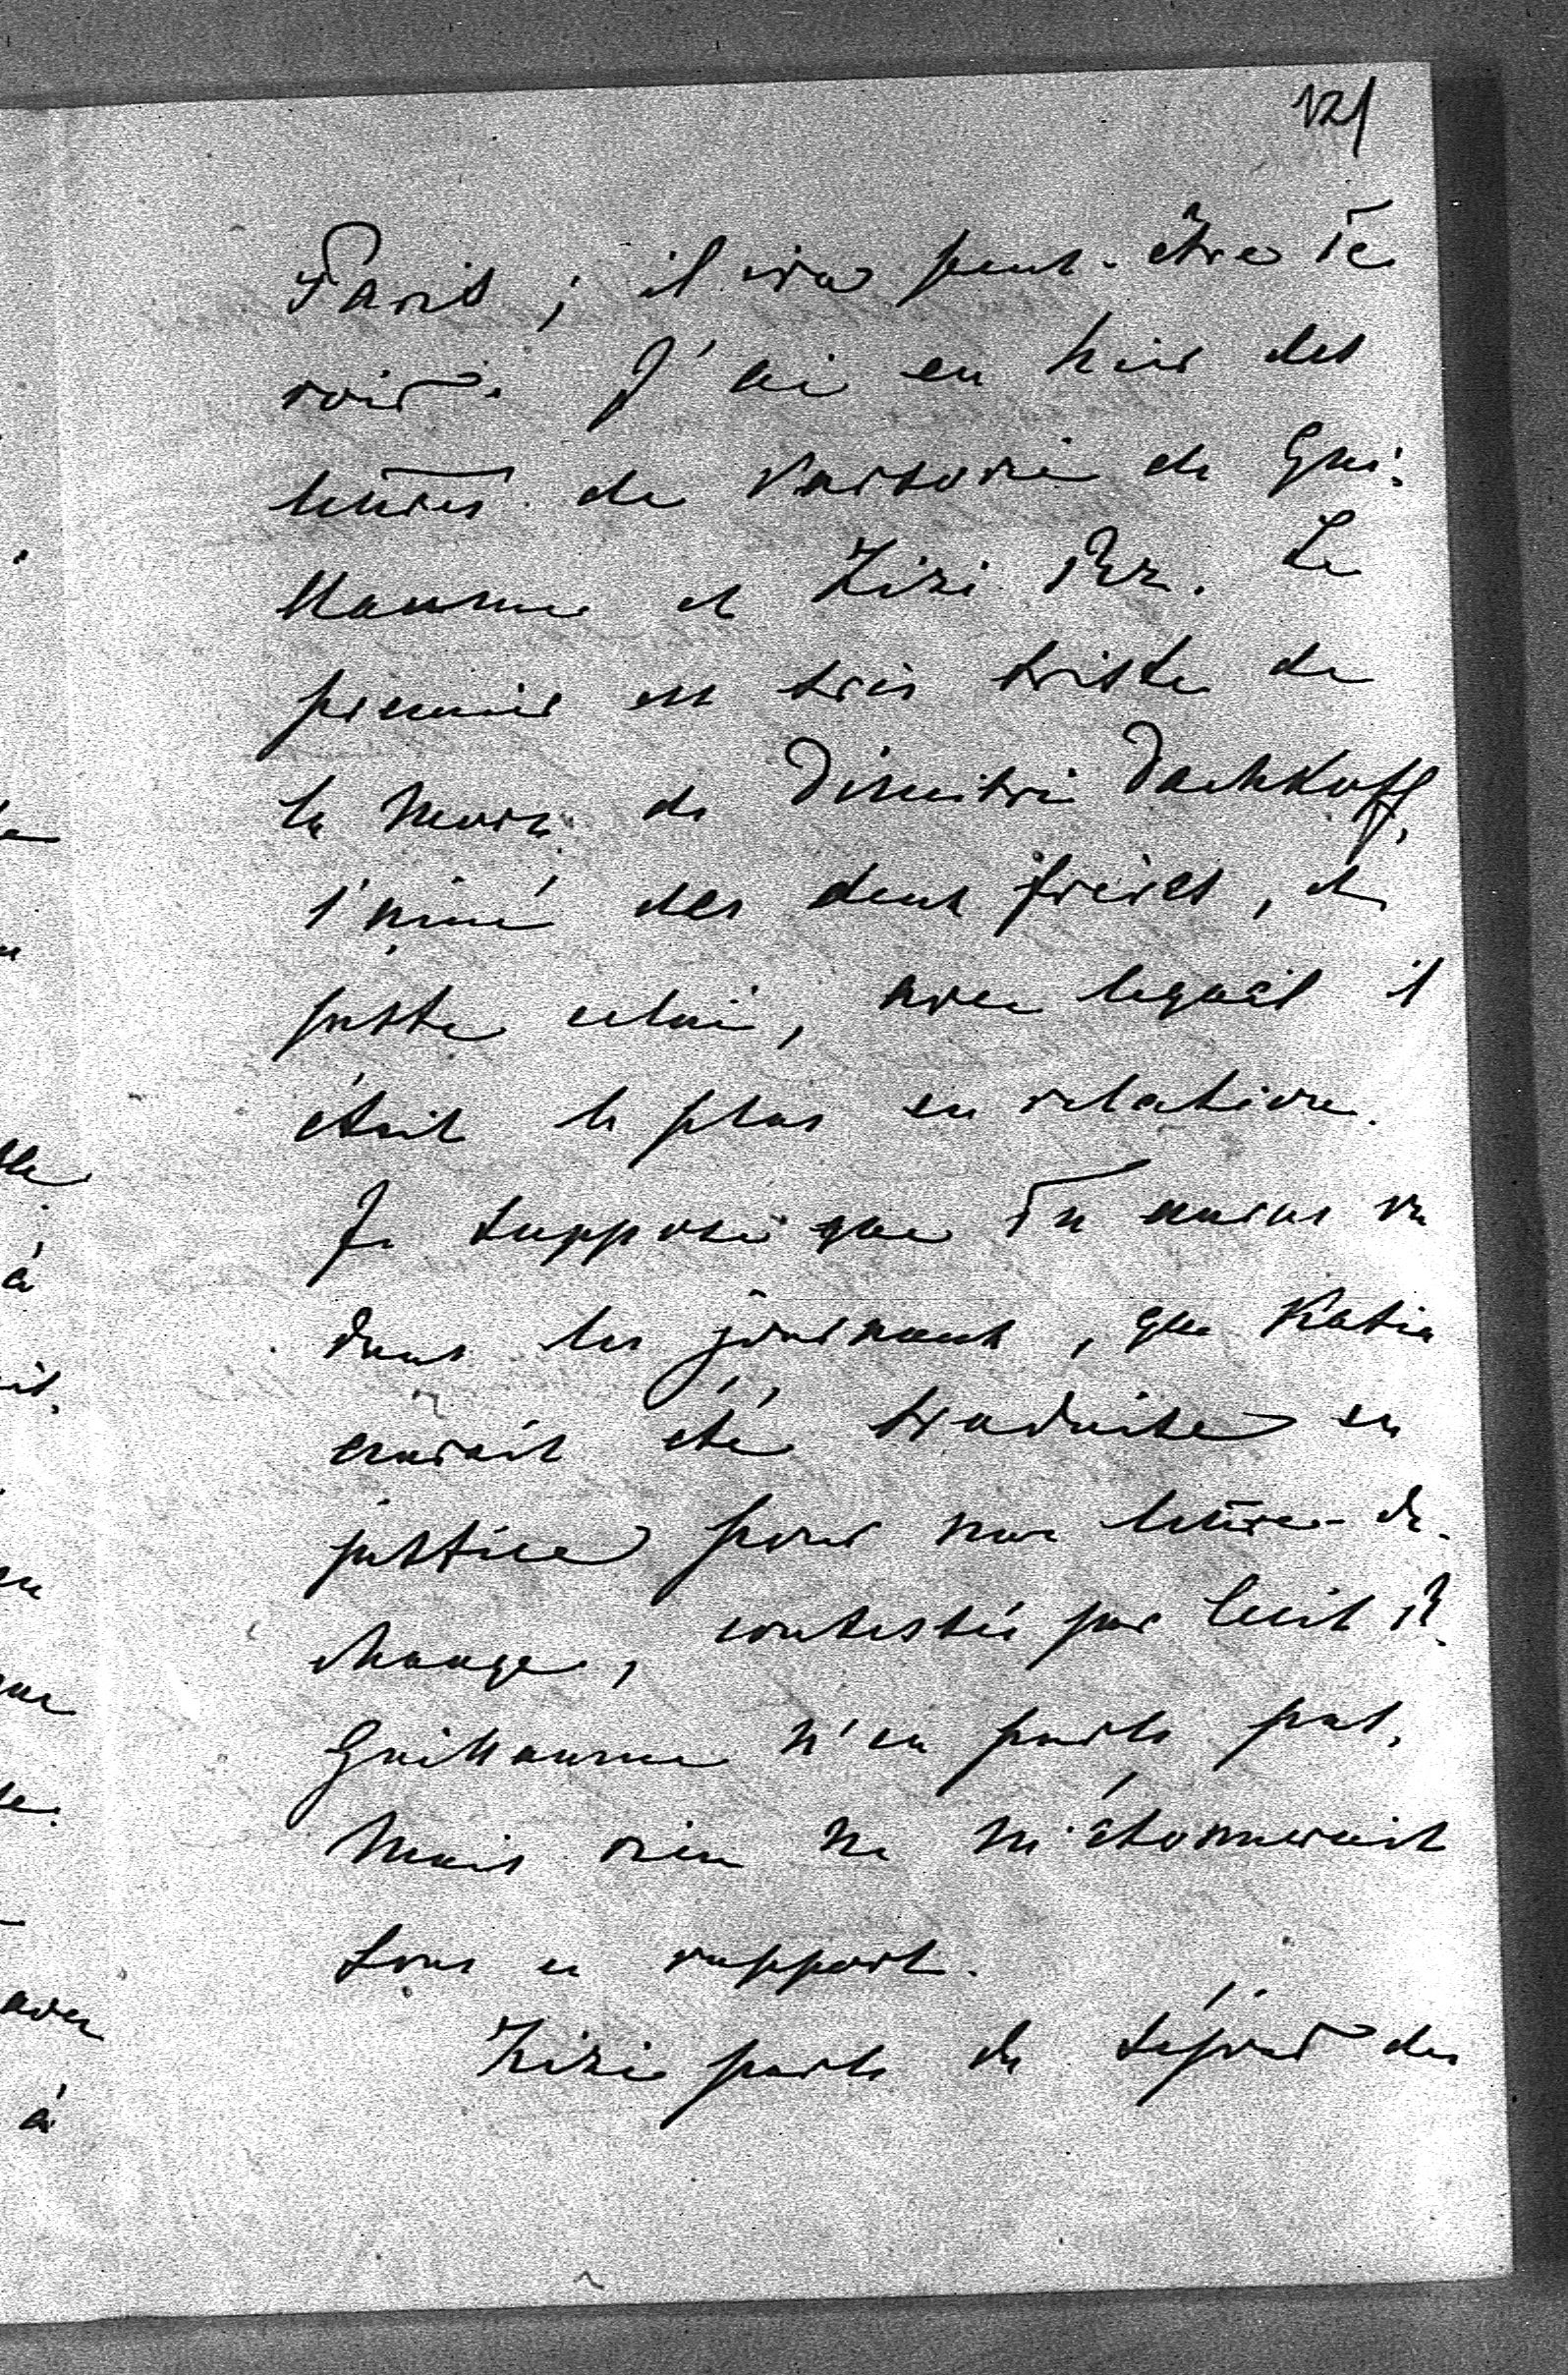 121
Paris ; il ira peut-être Te
voir. J'ai eu hier des
lettres de Varsovie de Gui-
llaume et Zizi Rz. Le
premier est très triste de
la mort de Dimitri Dachkoff,
l'aîné des deux frères, et
juste celui, avec lequel il
était le plus en relations.
Je suppose que Tu auras vu
dans les journaux, que Katia
aurait été traduite en
justice pour une lettre-de-
change, contestée par Cecil R.
Guillaume n'en parle pas,
Mais rien ne m'étonnerait
sous ce rapport.
Zizi parle du séjour des